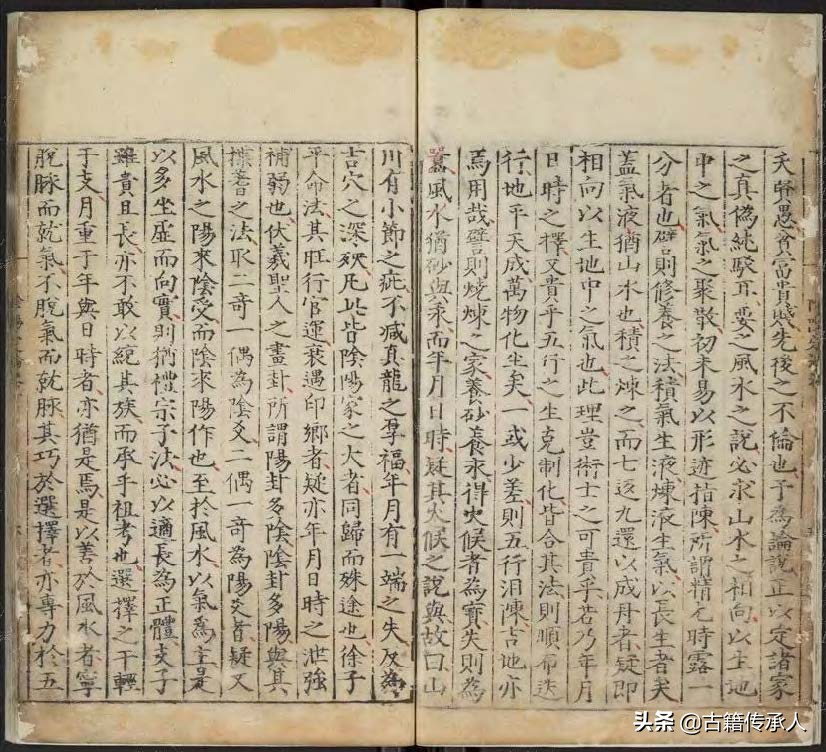 夭賢愚貧富貴賤先後之不倫也予為論說正以定諸家
之真偽純駁耳要之風水之說必求山水之相向以生地
中之氣氣之聚散初未易以形迹指陳所謂精光時露一
分者也譬則修養之法積氣生液煉液生氣以長生者矣
蓋氣液猶山水也積之煉之而七返九還以成丹者疑即
相向以生地中之氣也此理豈術士之可貴乎若乃年月
日時之擇又貴乎五行之生克制化皆合其法則順布迭
行地平天成萬物化生矣一或少差則五行汨陳吉地亦
焉用哉譬則燒煉之家養砂養汞得火候者為寶失則為
風水猶砂與汞而年月日時疑其火候之說與故曰山
川有小節之疵不減真龍之厚福年月有一端之失反為
吉穴之深殃凡此皆陰陽家之大者同歸而殊途也徐子
平命法其旺行官運衰遇印鄉者疑亦年月日時之泄強
補弱也伏羲聖人之畫卦所謂陽卦多陰陰卦多陽與其
揲蓍之法取二奇一偶為陰爻二偶一奇為陽爻者疑又
風水之陽來陰受而陰來陽作也至於風水以氣為主是
以多坐虛而向實則猶禮宗子法必以適長為正體支子
雖貴且長亦不敢以絕其族而承乎祖考也選擇之干輕
于支月重于年與日時者亦猶是焉是以善於風水者寧
脫脉而就氣不脫氣而就脉其巧於選擇者亦專力於五
头条 @古籍传承人